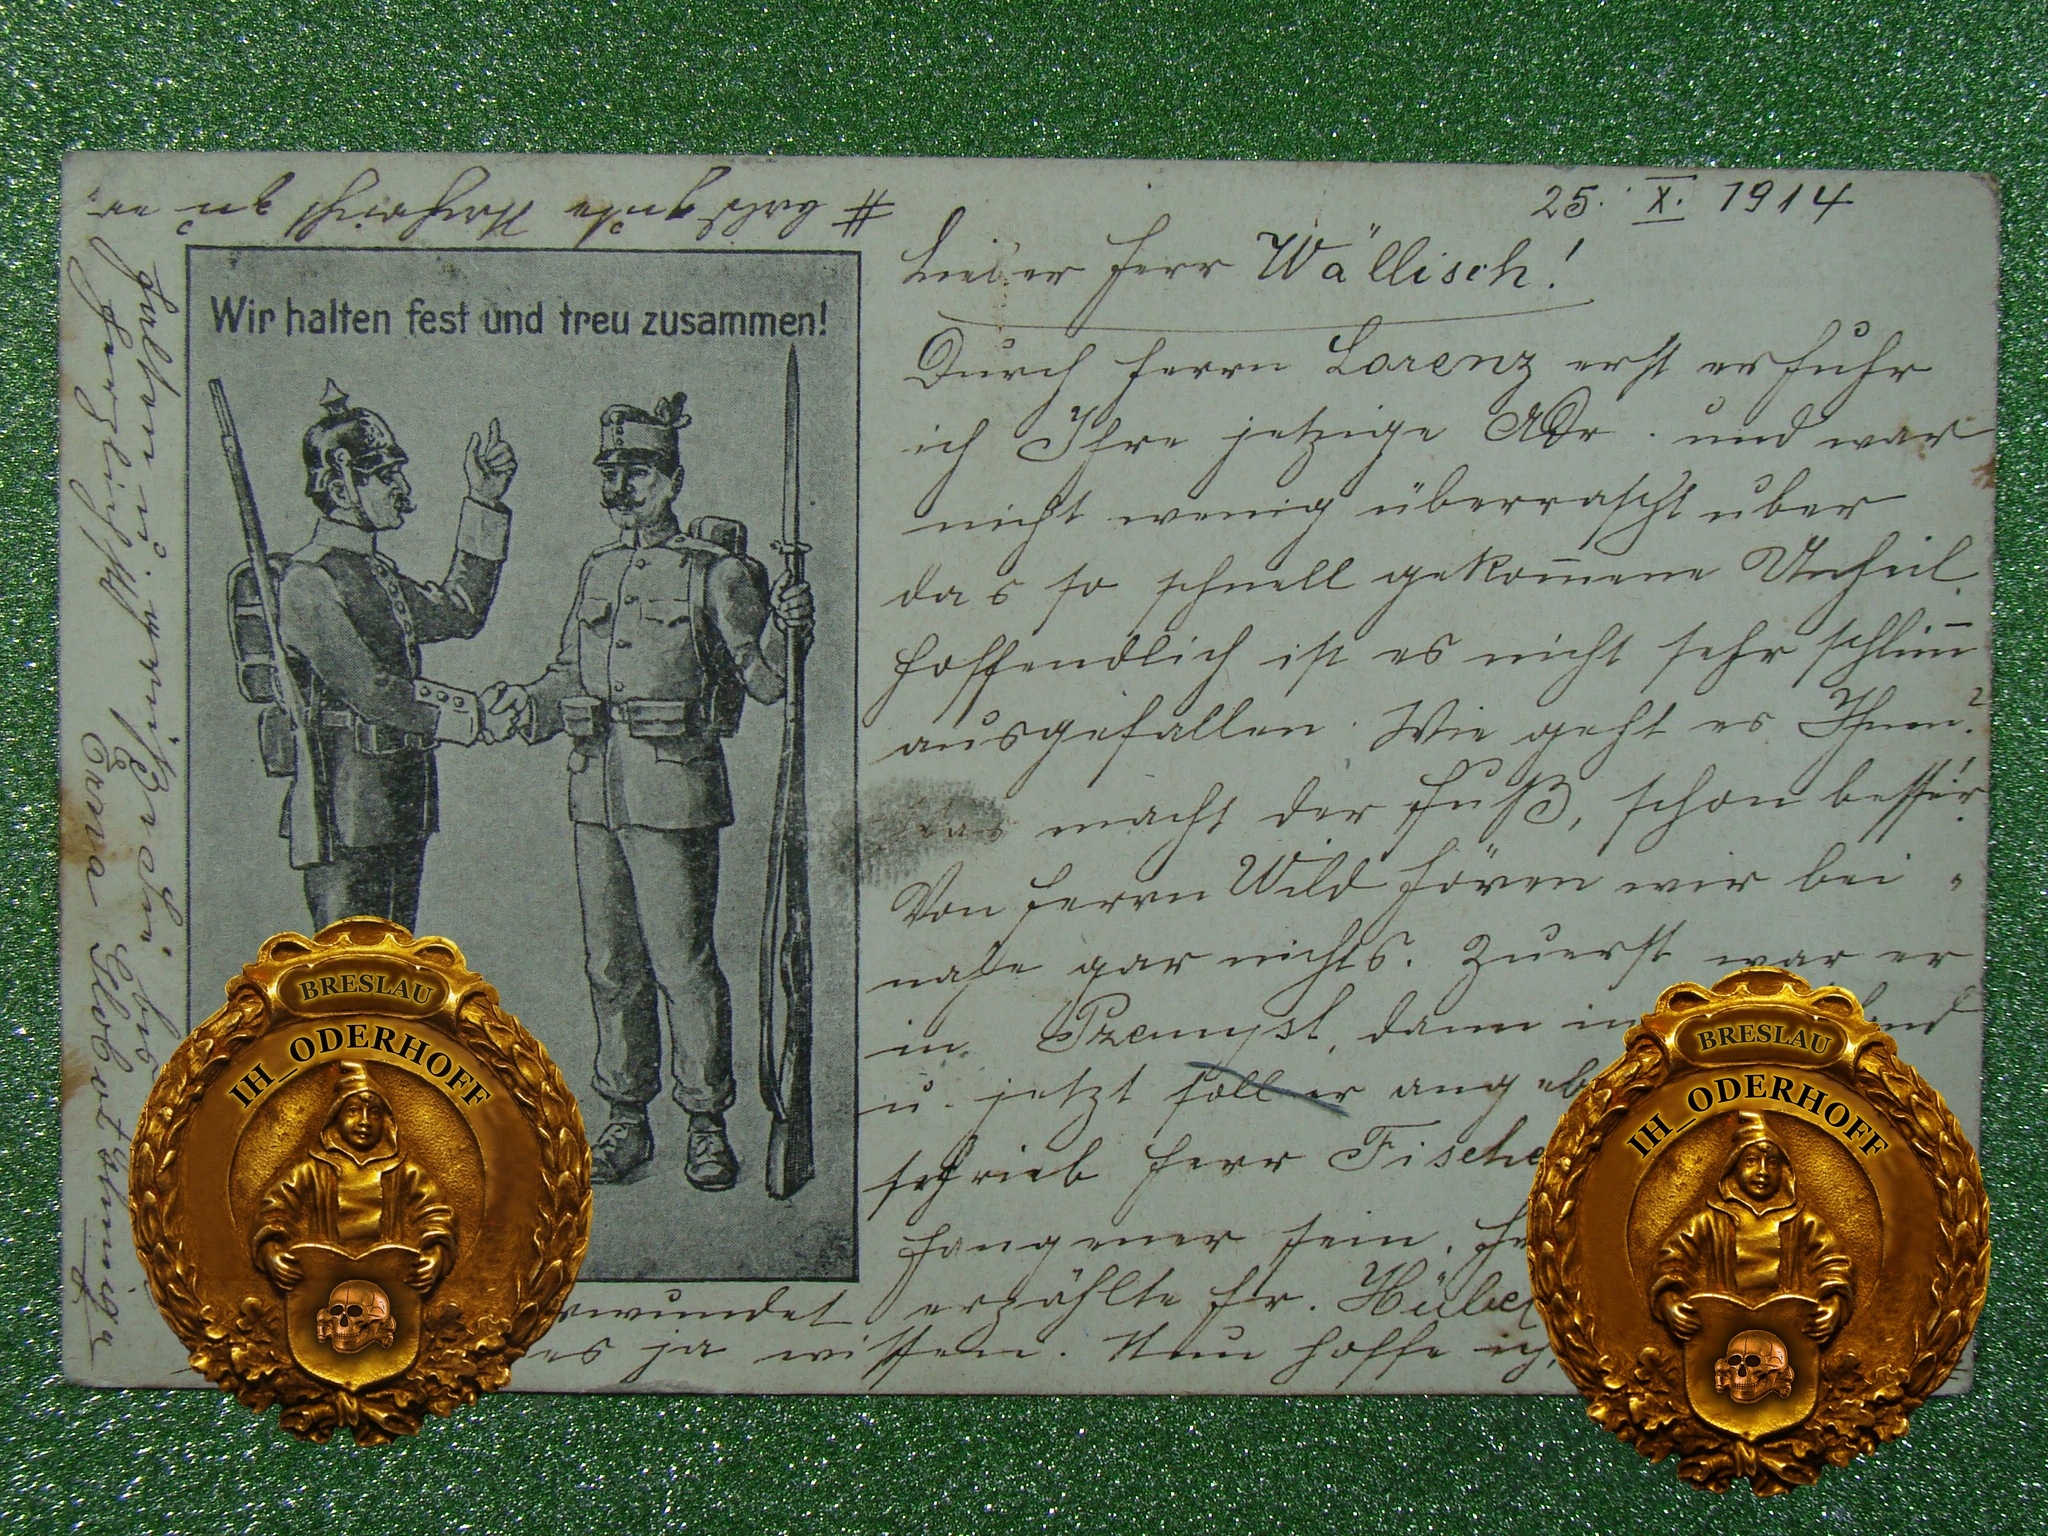 25. X. 1914
Lieber Herr Wällisch!
Wir halten fest und treu zusammen!
Durch Herrn Lorenz erst erfuhr
ich Ihre jetzige Adr. und war
nicht wenig überrascht über
das so schnell gekom̄ene Urtheil.
Hoffendlich ist es nicht sehr schlim̄
ausgefallen. Wie geht es Ihnen?
was macht der Fuß, schon besser?
Von Herrn Wild hören wir bei
nahe gar nichts. Zuerst war er
in Przemysl, dann in
u. jetzt soll er angeb
schrieb Herr Fische
fangener sein.
erzählte Fr. Hübel
wundet
es ja wissen. Nun hoffe ich,
# baldig gute Nachricht zu
herzlichst
Erna
BRESLAU
IH_ODERHOFF
BRESLAU
IH_ODERHOFF